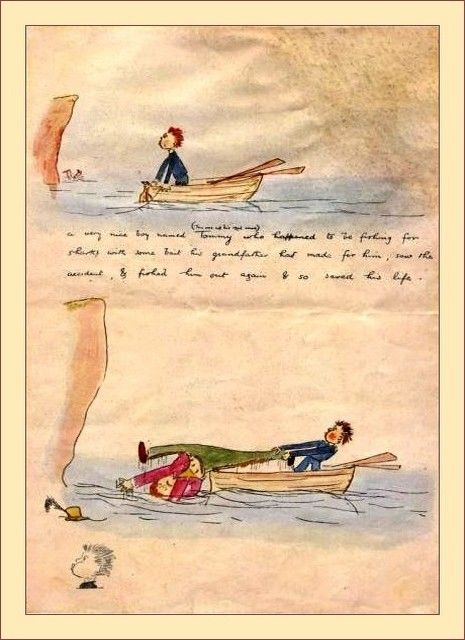 a very nice boy named Tommy who happened to be fishing for
sharks with some bait his grandfather had made for him, saw the
accident, & fished him out again & so saved his life.